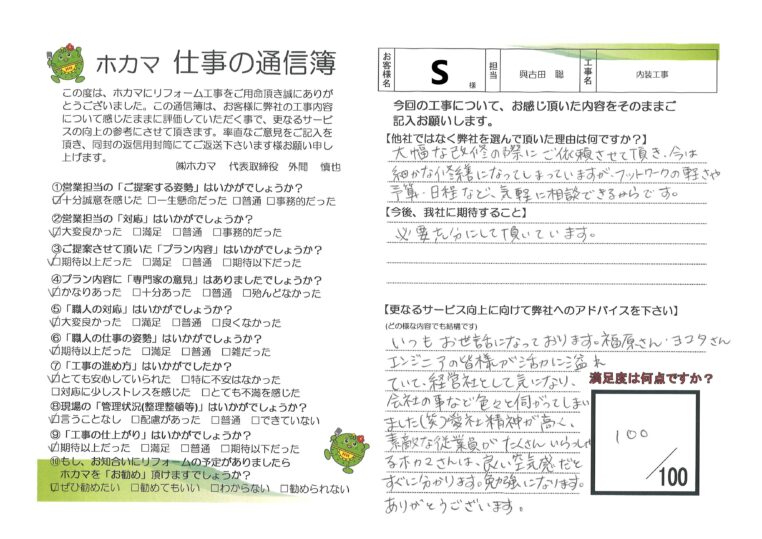 ホカマ 仕事の通信簿
この度は、ホカマにリフォーム工事をご用命頂き誠にありが
とうございました。この通信簿は、お客様に弊社の工事内容
について感じたままに評価していただく事で、更なるサービ
スの向上の参考にさせて頂きます。率直なご意見をご記入を
頂き、同封の返信用封筒にてご返送下さいます様お願い申し
上げます。
㈱ホカマ 代表取締役 外間 慎也
①営業担当の「ご提案する姿勢」はいかがでしょうか?
☑十分誠意を感じた □一生懸命だった □普通 □事務的だった
②営業担当の「対応」はいかがでしょうか?
☑大変良かった □満足 □普通 □事務的だった
③ご提案させて頂いた「プラン内容」はいかがでしょうか?
☑期待以上だった □満足 □普通 □期待以下だった
④プラン内容に「専門家の意見」はありましたでしょうか?
☑かなりあった □十分あった □普通 □殆んどなかった
⑤「職人の対応」はいかがでしょうか?
☑大変良かった □満足 □普通 □良くなかった
⑥「職人の仕事の姿勢」はいかがでしょうか?
☑期待以上だった □満足 □普通 □雑だった
⑦「工事の進め方」はいかがでしたか?
☑とても安心していられた □特に不安はなかった
□対応に少しストレスを感じた □とても不満を感じた
⑧現場の「管理状況(整理整頓等)」はいかがでしょうか?
☑言うことなし □配慮があった □普通 □できていない
⑨「工事の仕上がり」はいかがでしょうか?
☑期待以上だった □満足 □普通 □期待以下だった
⑩もし、お知合いにリフォームの予定がありましたら
ホカマを「お勧め」頂けますでしょうか?
☑ぜひ勧めたい □勧めてもいい □わからない □勧められない
お客様名 S 様 担当 與古田 聡 工事名 内装工事
今回の工事について、お感じ頂いた内容をそのままご
記入お願いします。
【他社ではなく弊社を選んで頂いた理由は何ですか?】
大幅な改修の際にご依頼させて頂き、今は
細かな修繕になってしまっていますが、フットワークの軽さや
予算・日程など、気軽に相談できるからです。
【今後、我社に期待すること】
必要充分にして頂いています。
【更なるサービス向上に向けて弊社へのアドバイスを下さい】
(どの様な内容でも結構です)
いつもお世話になっております。福原さん・ヨコタさん
エンジニアの皆様が活力に溢れ
ていて、経営社として気になり、
会社の事など色々と伺がってしまい
ました(笑)愛社精神が高く、
素敵な従業員がたくさんいらっしゃ
るホカマさんは、良い空気感だと
すぐに分かります。勉強になります。
ありがとうございます。
満足度は何点ですか?
100
/100